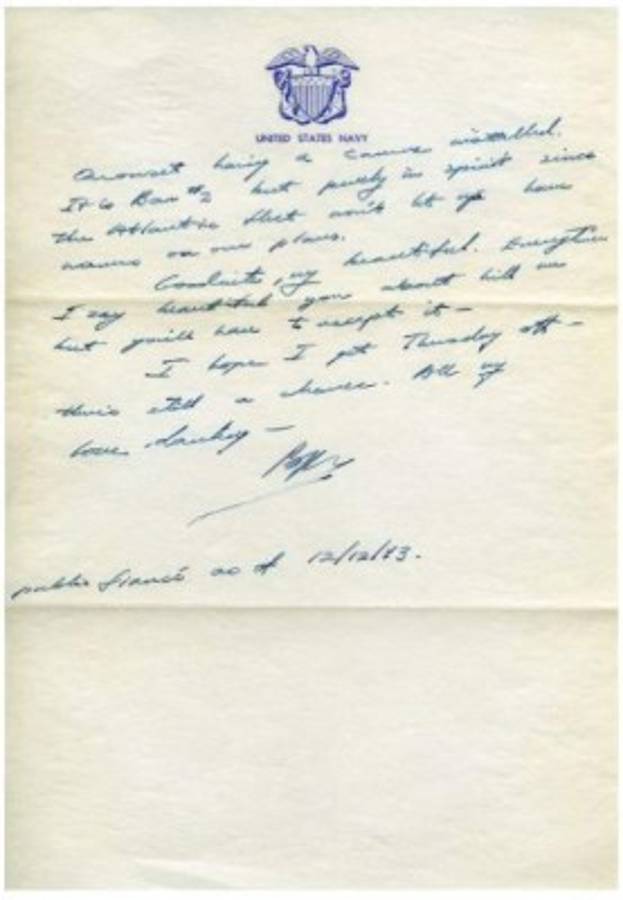 UNITED STATES NAVY
having a camera installed.
It is Bar #2 but purely in spirit since
the Atlantic fleet won't let us have
names on our planes.
Goodnite, my beautiful. Everytime
I say beautiful you about kill me
but you'll have to accept it —
I hope I get Thursday off —
there's still a chance. All my
love darling —
Poppy
public fiancé as of 12/12/43.